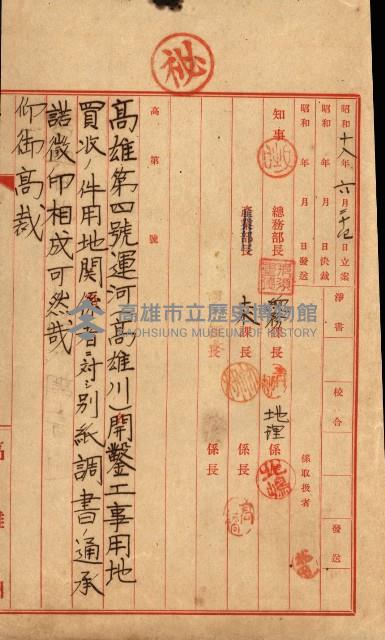 秘
昭和十八年六月 日立案
昭和 年 月 日決裁
昭和 年 月 日發送
淨書
校合
發送
知事
總務部長
課長
地理
係長
係取扱者
產業部長
土木課長
係長
課長
係長
高 第 號
高雄第四號運河(高雄川)開鑿工事用地
買收ノ件用地關係者ニ対シ別紙調書通承
諾徵印相成可然哉
仰御高裁
高雄市立歷史博物館
KAOHSIUNG MUSEUM OF HISTORY
高雄州